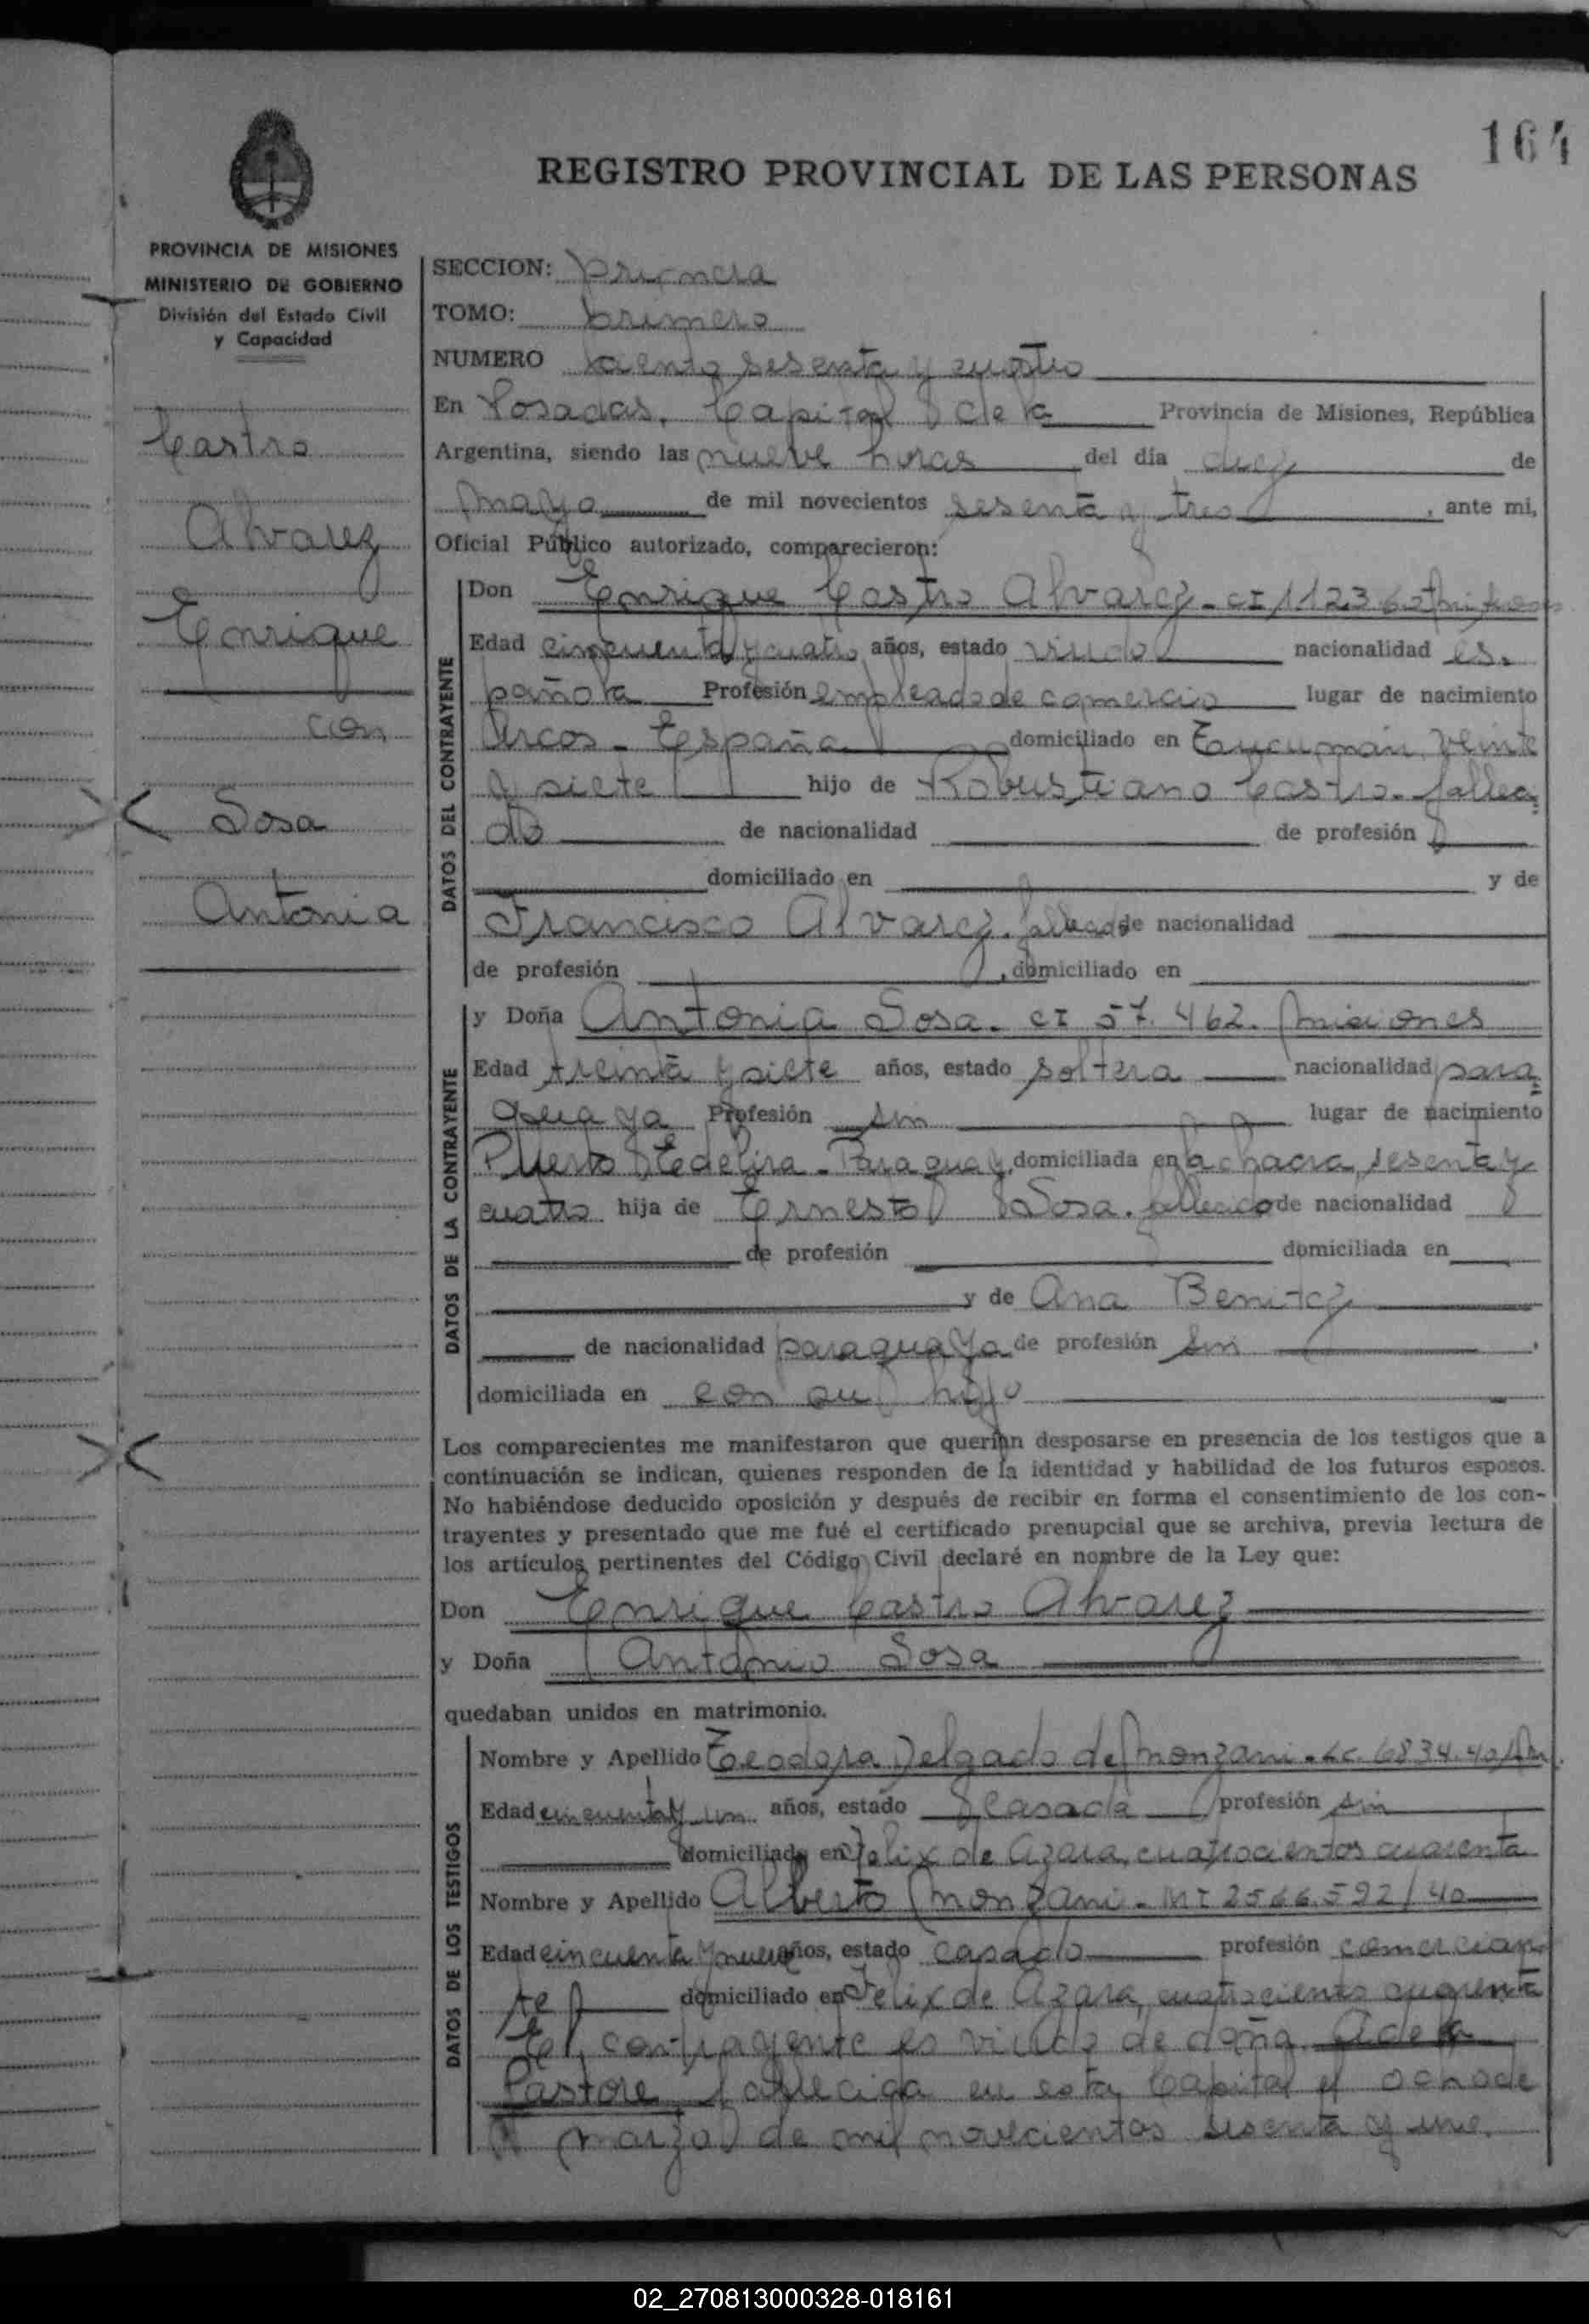 164
REGISTRO PROVINCIAL DE LAS PERSONAS
PROVINCIA DE MISIONES
MINISTERIO DE GOBIERNO
División del Estado Civil
y Capacidad
Castro
Alvarez
Enrique
con
Sosa
Antonia
SECCION: primera
TOMO: primero
NUMERO ciento sesenta y cuatro
En Posadas, Capital de la Provincia de Misiones, República
Argentina, siendo las nueve horas del día diez de
mayo de mil novecientos sesenta y tres, ante mi,
Oficial Público autorizado, comparecieron:
DATOS DEL CONTRAYENTE
Don Enrique Castro Alvarez - CI 112360
Edad cincuenta y cuatro años, estado viudo nacionalidad es-
pañola Profesión empleado de comercio lugar de nacimiento
Arcos - España domiciliado en Tucumán veinte
y siete hijo de Robustiano Castro - falleci-
do de nacionalidad de profesión
domiciliado en y de
Francisco Alvarez. de nacionalidad
de profesión , domiciliado en
DATOS DE LA CONTRAYENTE
y Doña Antonia Sosa - CI 57.462. Misiones
Edad treinta y siete años, estado soltera nacionalidad para-
guaya Profesión sin lugar de nacimiento
Puerto - Paraguay, domiciliada en la chacra sesenta y
cuatro hija de Ernesto Sosa. fallecido de nacionalidad
de profesión domiciliada en
y de Ana Benitez
de nacionalidad paraguaya de profesión sin ,
domiciliada en con su hijo
Los comparecientes me manifestaron que querían desposarse en presencia de los testigos que a
continuación se indican, quienes responden de la identidad y habilidad de los futuros esposos.
No habiéndose deducido oposición y después de recibir en forma el consentimiento de los con-
trayentes y presentado que me fué el certificado prenupcial que se archiva, previa lectura de
los artículos pertinentes del Código Civil declaré en nombre de la Ley que:
Don Enrique Castro Alvarez
y Doña Antonia Sosa
quedaban unidos en matrimonio.
DATOS DE LOS TESTIGOS
Nombre y Apellido Teodora Delgado de Monzani - LC. 6834.40
Edad cincuenta y un años, estado casada profesión sin
domiciliado en Felix de Azara, cuatrocientos cuarenta
Nombre y Apellido Alberto Monzani - MI 2566.592/40
Edad cincuenta y nueve años, estado casado profesión comercian
te domiciliado en Felix de Azara, cuatrocientos cuarenta
El contrayente es viudo de doña Adela
Pastore fallecida en esta Capital el ocho de
marzo de mil novecientos sesenta y uno.
02_270813000328-018161